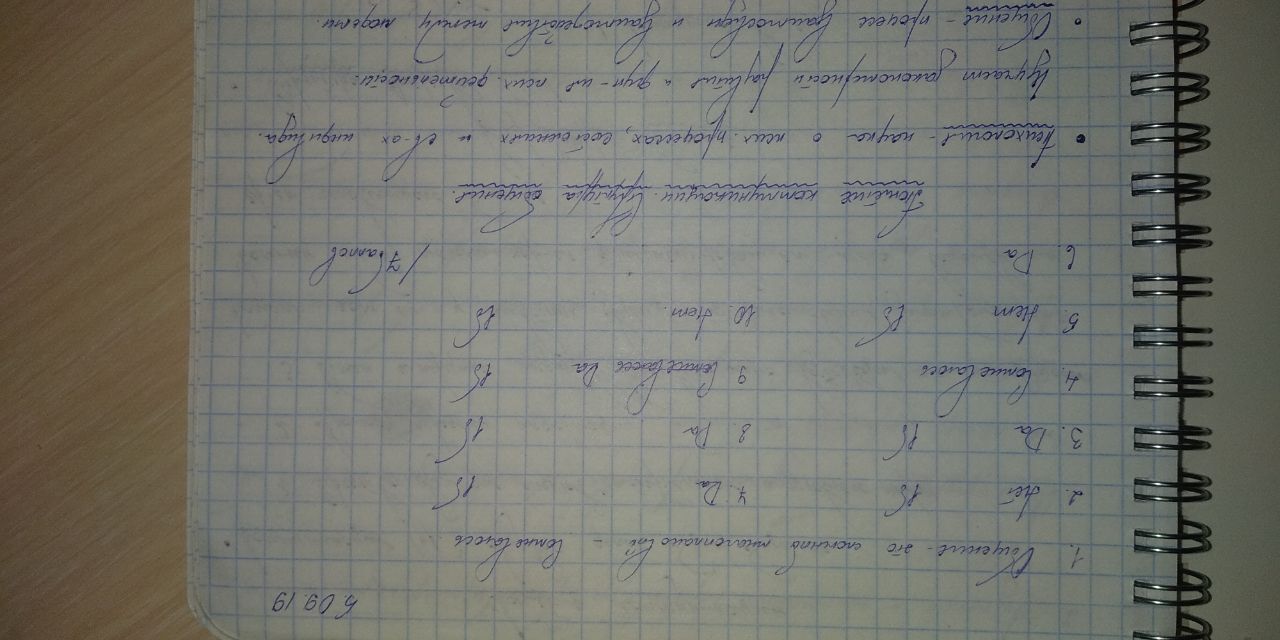 5.09.19
1. Общение - это сложный многоплановый - Сомневаюсь
2. Нет 1б 7. Да 1б
3. Да 1б 8. Да 1б
4. Сомневаюсь 9 Сомневаюсь Да 1б
5. Нет 1б 10. Нет. 1б
6. Да / 7 баллов
Понятие коммуникации. Структура общения.
• Психология - наука о псих. процессах, состояниях и св-ах индивида.
Изучает закономерности развития и фун-ия псих. деятельности.
• Общение - процесс взаимосвязи и взаимодействия между людьми.